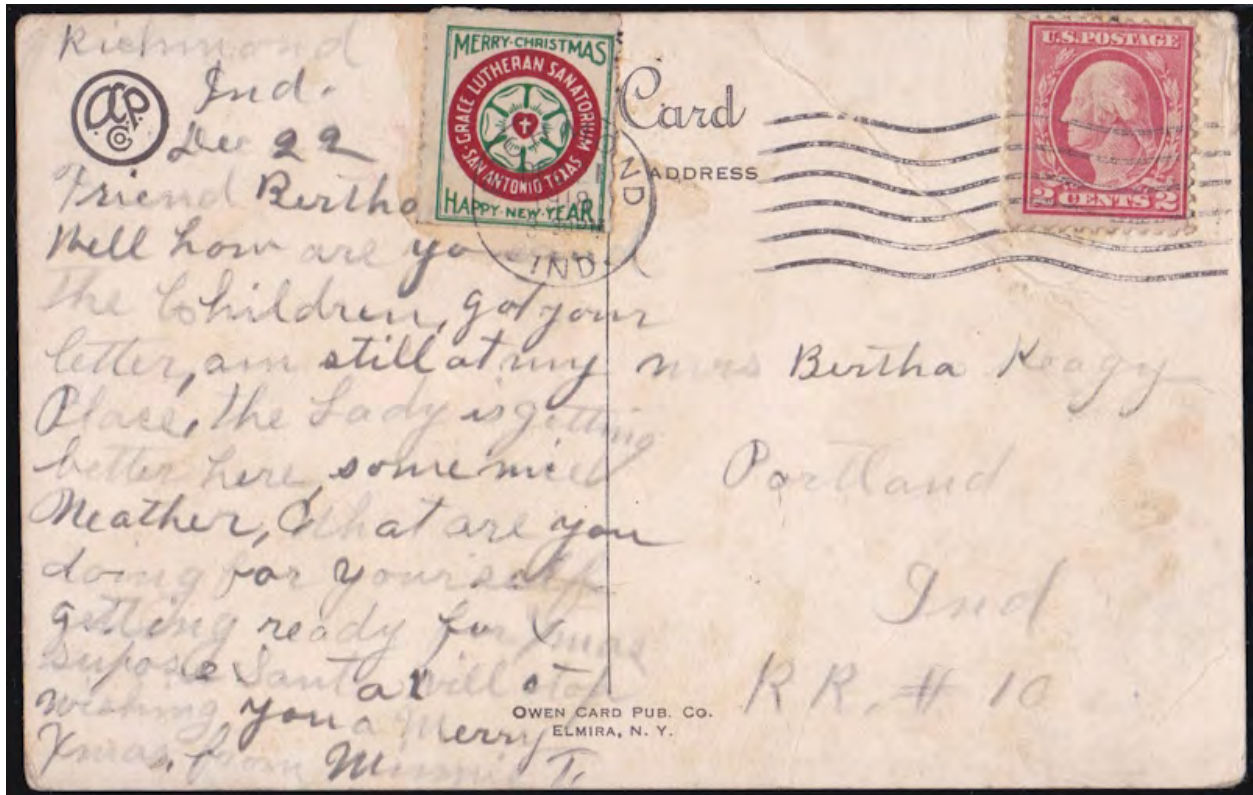 Richmond
Ind.
Dec 22
Friend Bertha
Well how are you and
the Children, got your
letter, am still at my
Place, the Lady is getting
better here, some nice
Weather, What are you
doing for yourself
getting ready for Xmas
supose Santa will stop
wishing you a Merry
Xmas, from Minnie T.
ACP.
Co.
MERRY-CHRISTMAS
GRACE LUTHERAN SANATORIUM
SAN ANTONIO TEXAS
HAPPY-NEW-YEAR
IND
Card
ADDRESS
U.S. POSTAGE
2 CENTS 2
Mrs Bertha Keagy
Portland
Ind
R R. # 10
OWEN CARD PUB. CO.
ELMIRA, N. Y.